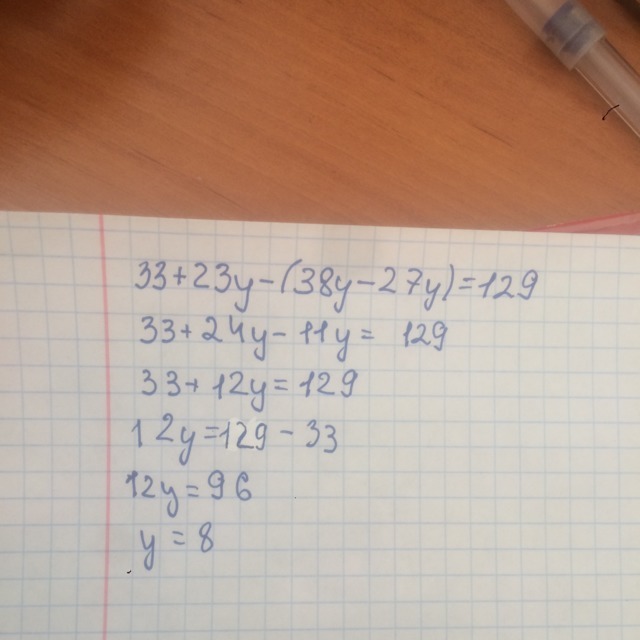 33+23y-(38y-27y)=129
33+24y-11y= 129
33+12y=129
12y=129-33
12y=96
y=8